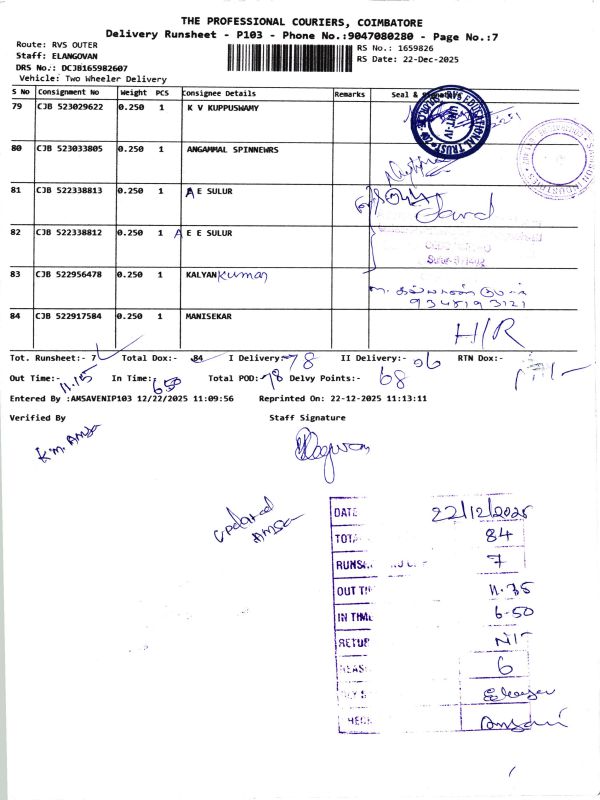 THE PROFESSIONAL COURIERS, COIMBATORE
Delivery Runsheet - P103 - Phone No.:9047080280 - Page No.:7
Route: RVS OUTER
Staff: ELANGOVAN
DRS No.: DCJB165982607
Vehicle: Two Wheeler Delivery
RS No.: 1659826
RS Date: 22-Dec-2025
S No Consignment No Weight PCS Consignee Details Remarks Seal & Signature
79 CJB 523029622 0.250 1 K V KUPPUSWAMY
80 CJB 523033805 0.250 1 ANGAMMAL SPINNEWRS
81 CJB 522338813 0.250 1 A E SULUR
82 CJB 522338812 0.250 1 A E E SULUR
83 CJB 522956478 0.250 1 KALYAN Kumar
9345193121
84 CJB 522917584 0.250 1 MANISEKAR
H/R
Tot. Runsheet:- 7 Total Dox:- 84 I Delivery:- 78 II Delivery:- 06 RTN Dox:-
Out Time:- 11.15 In Time:- 650 Total POD:- 78 Delvy Points:- 68
Entered By :AMSAVENIP103 12/22/2025 11:09:56 Reprinted On: 22-12-2025 11:13:11
Verified By Staff Signature
K.M. AMSA
updated
AMSA
DATE 22/12/2025
84
7
OUT TI 11.35
IN TIME 6-50
RETUR NIL
6